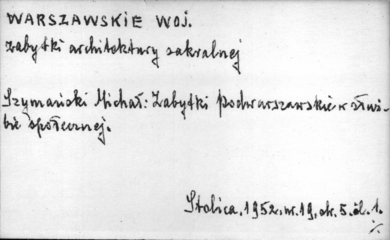 WARSZAWSKIE WOJ.
Zabytki architektury sakralnej
Szymański Michał: Zabytki podwarszawskie w służ-
bie społecznej.
Stolica, 1952, nr. 19, ok. 5. il. 1.